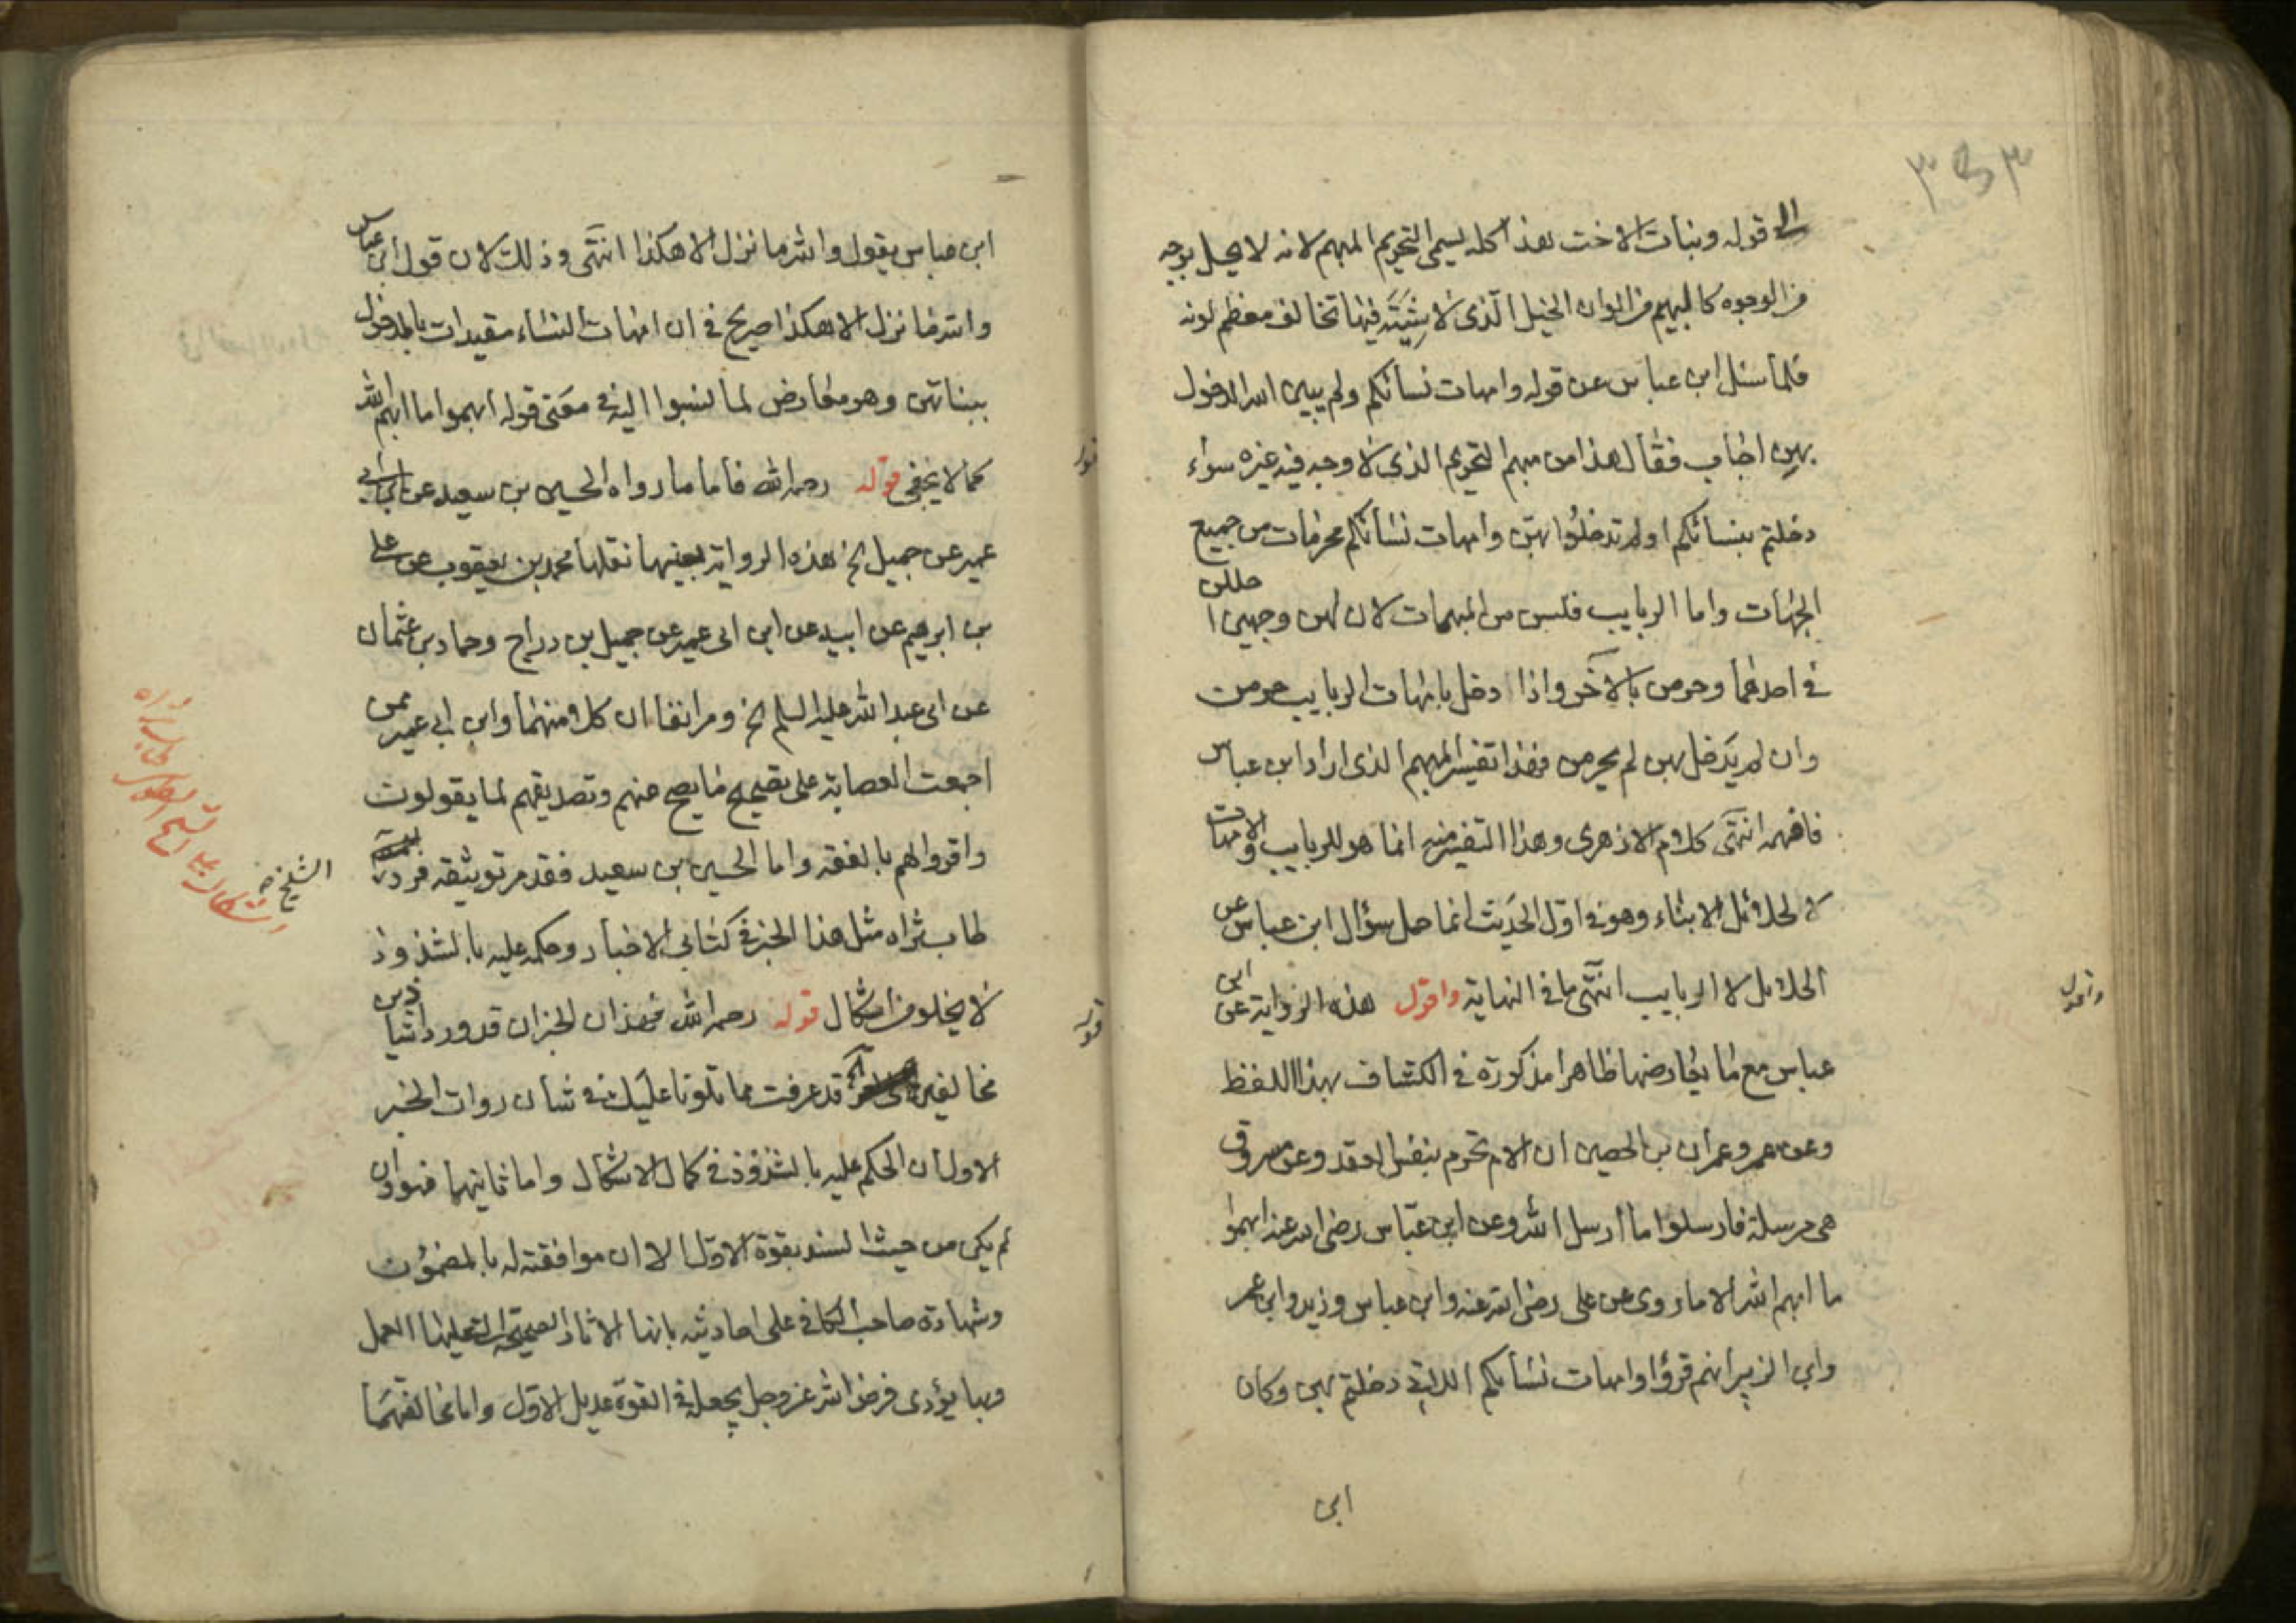 ٣٥٣
الى قوله وبنات الاخت هذا كله يسمى التحريم المبهم لانه لا يحل بوجه
من الوجوه كالبهيم من الوان الخيل الذى لا شية فيها تخالف معظم لونه
فلما سئل ابن عباس عن قوله وامهات نسائكم ولم يبين الله الدخول
بهن اجاب فقال هذا من مبهم التحريم الذى لا وجه فيه غيره سواء
دخلتم بنسائكم او لم تدخلوا بهن وامهات نسائكم محرمات من جميع
الجهات واما الربايب فلسن من المبهمات لان لهن وجهين احللن
فى احدهما وحرمن بالآخر واذا دخل بامهات الربايب حرمن
وان لم يدخل بهن لم يحرمن فهذا تفسير المبهم الذى اراد ابن عباس
فافهمه انتهى كلام الازهرى وهذا التفسير منه انما هو للربايب والامهات
لا لحلائل الابناء وهو فى اول الحديث انما جعل سؤال ابن عباس عن
الحلائل لا الربايب انتهى ما فى النهاية واقول هذه الرواية عن ابن
واقول
عباس مع ما يعارضها ظاهرا مذكورة فى الكشاف بهذا اللفظ
وعن عمر وعمران بن الحصين ان الام تحرم بنفس العقد وعن مسروق
هى مرسلة فارسلوا ما ارسل الله وعن ابن عباس رضى الله عنه ابهموا
ما ابهم الله الا ما روى عن على رضى الله عنه وابن عباس وزيد وابن عمر
وابن الزبير انهم قرؤا وامهات نسائكم اللاتى دخلتم بهن وكان
ابن
ابن عباس يقول والله ما نزل الا هكذا انتهى وذلك لان قول ابن عباس
والله ما نزل الا هكذا صريح فى ان امهات النساء مقيدات بالدخول
ببناتهن وهو معارض لما نسبوا اليه فى معنى قوله ابهموا ما ابهم الله
كما لا يخفى قوله رحمه الله فاما ما رواه الحسين بن سعيد عن ابن ابى
قوله
عمير عن جميل الخ هذه الرواية بعينها نقلها محمد بن يعقوب عن على
بن ابرهيم عن ابيه عن ابن ابى عمير عن جميل بن دراج وحماد بن عثمان
عن ابى عبد الله عليه السلم الخ ومر انفا ان كلا منهما وابن ابى عمير ممن
اجمعت العصابة على تصحيح ما يصح عنهم وتصديقهم لما يقولون
واقروا لهم بالفقه واما الحسين بن سعيد فقد مر توثيقه فرد
الشيخ
طاب ثراه مثل هذا الخبر فى كتابى الاخبار وحكمه عليه بالشذوذ
لا يخلو من اشكال قوله رحمه الله فهذان الخبران قد وردا شاذين
قوله
مخالفين قد عرفت مما تلونا عليك فى شان روات الخبر
الاول ان الحكم عليه بالشذوذ فى كمال الاشكال واما ثانيهما فهو وان
لم يكن من حيث السند بقوة الاول الا ان موافقته له بالمضمون
وشهادة صاحب الكافى على احاديثه بانها الاثار الصحيحة التى عليها العمل
وبها يؤدى فرض الله عز وجل يجعله فى القوة عديل الاول واما مخالفتهما